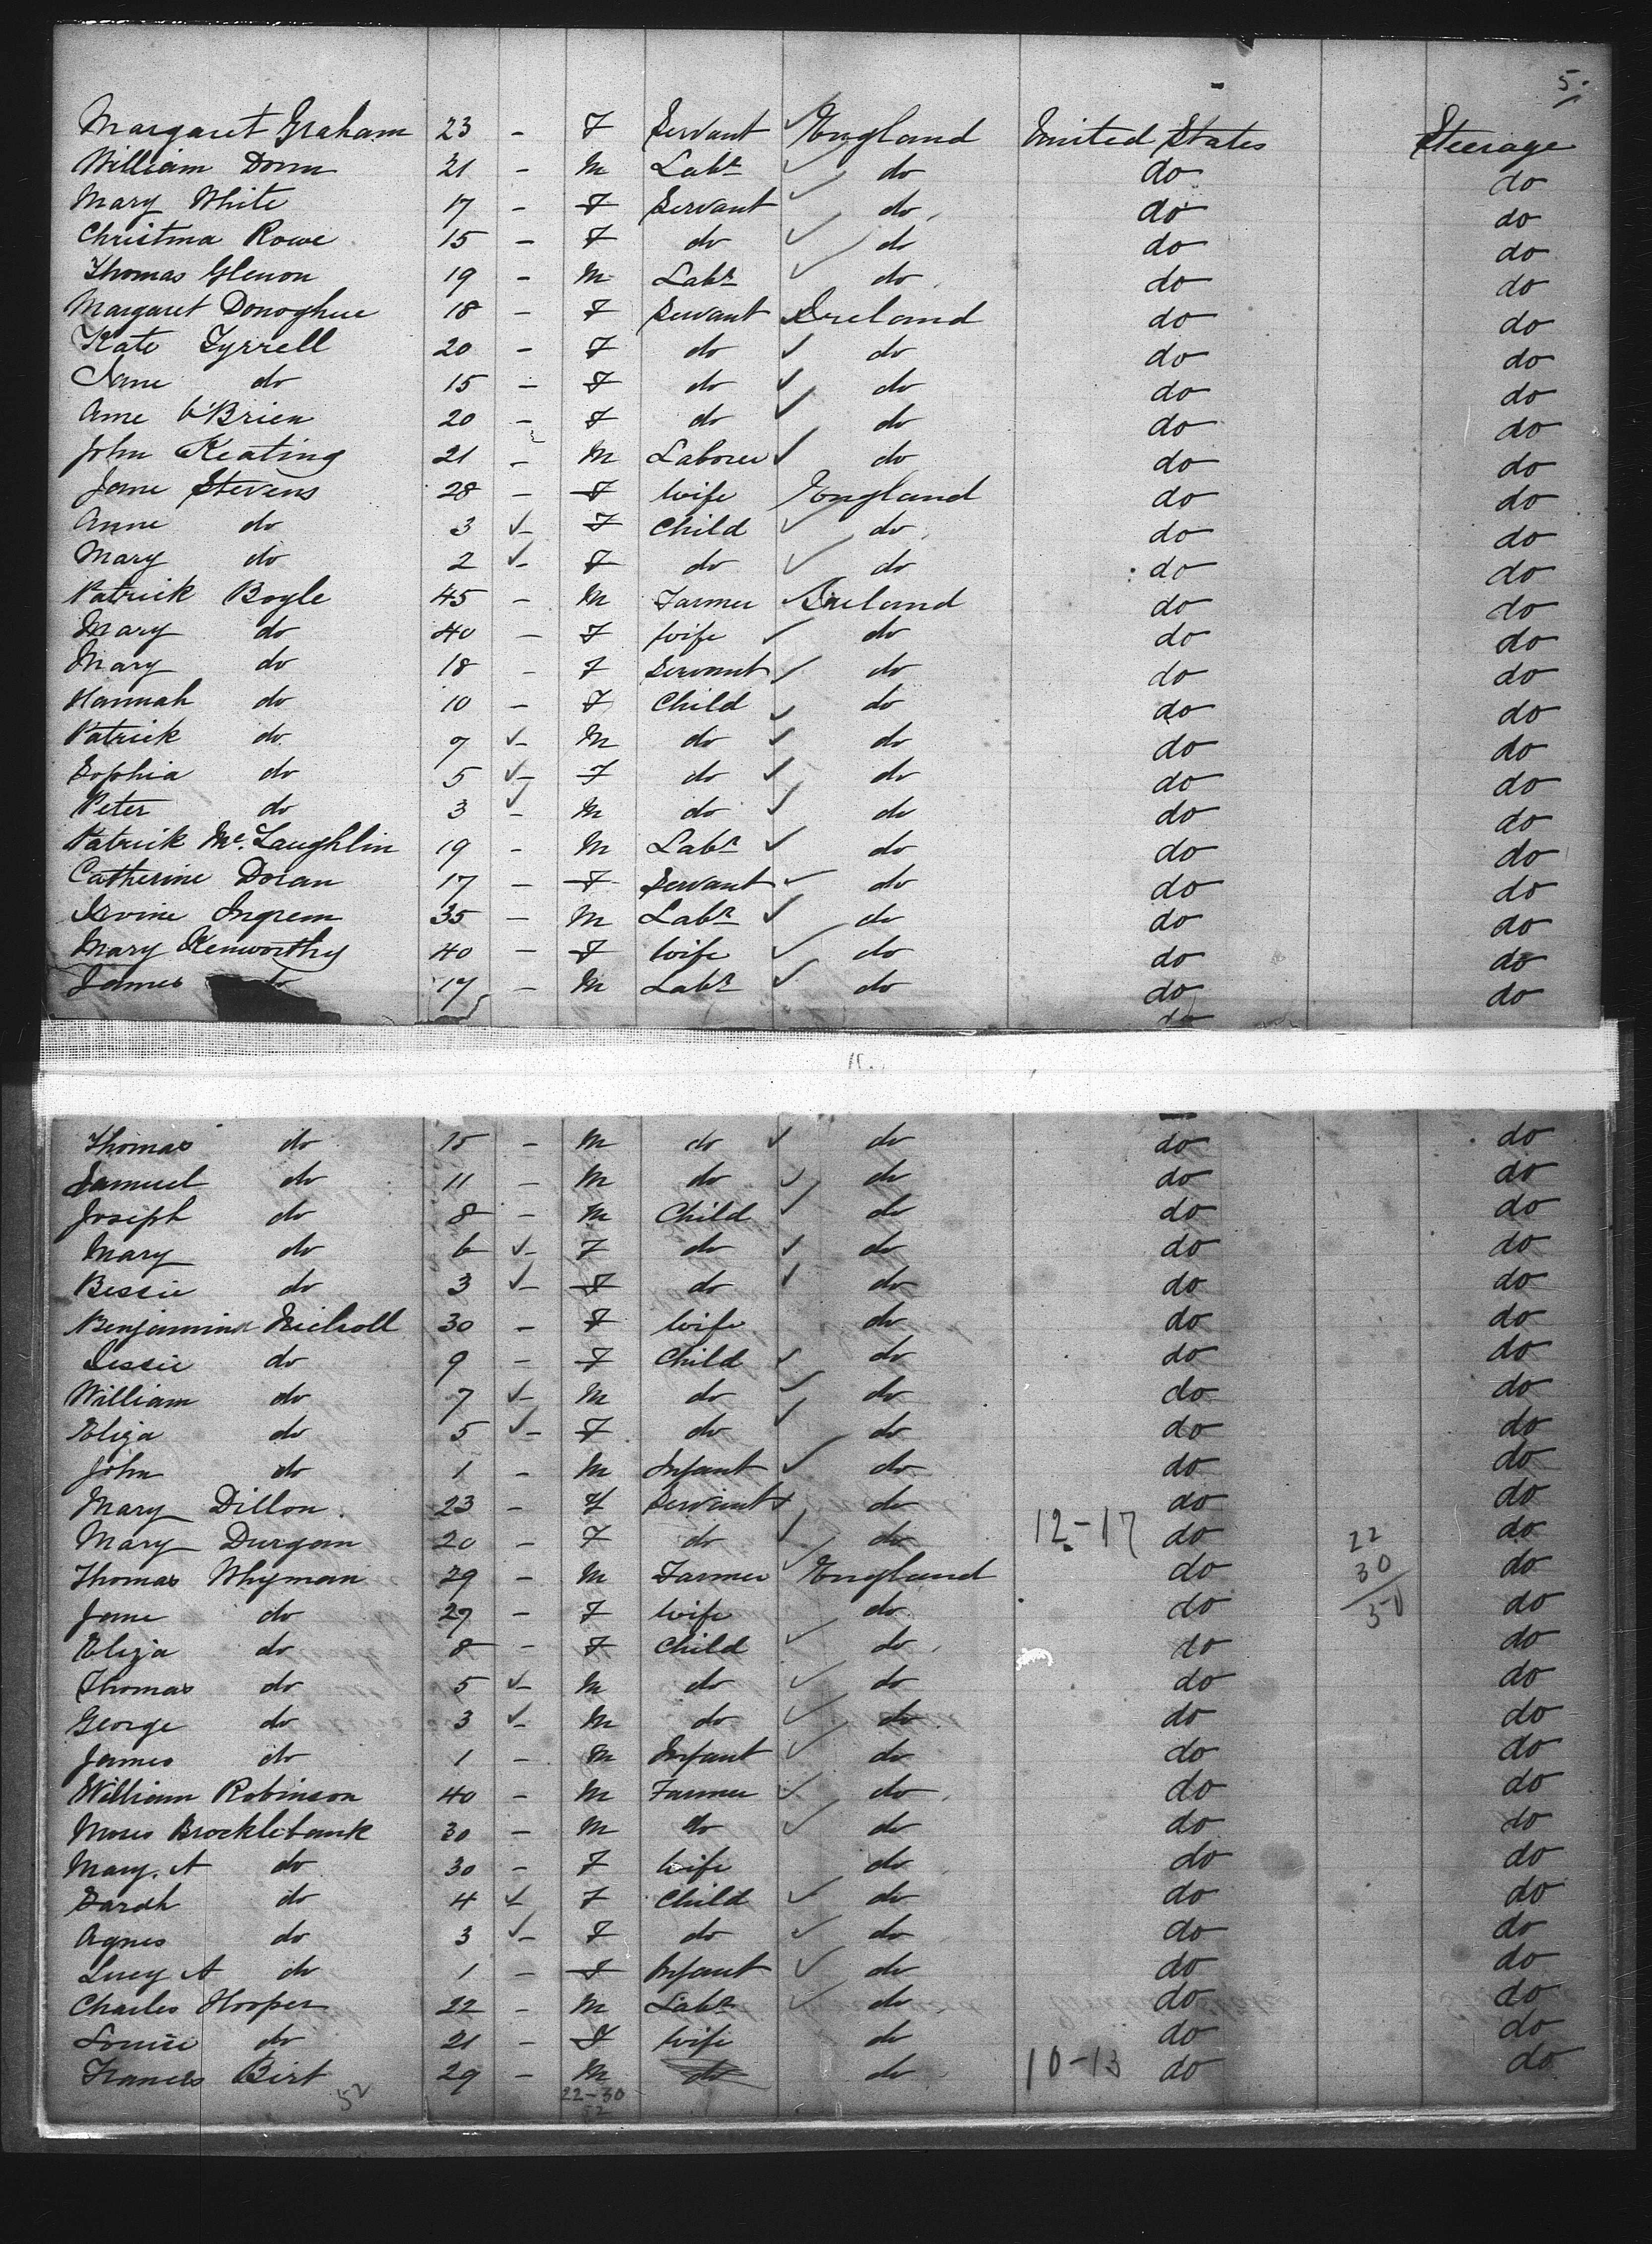 5.
Margaret Graham 23 - F Servant ✓ England United States Steerage
William Dorin 21 - M Labr ✓ do do do
Mary White 17 - F Servant ✓ do do do
Christina Rowe 15 - F do ✓ do do do
Thomas Glenon 19 - M Labr ✓ do do do
Margaret Donoghue 18 - F Servant ✓ Ireland do do
Kate Tyrrell 20 - F do ✓ do do do
Anne do 15 - F do ✓ do do do
Anne O'Brien 20 - F do ✓ do do do
John Keating 21 - M Laborer ✓ do do do
Jane Stevens 28 - F Wife England do do
Anne do 3 ✓ - F Child ✓ do do do
Mary do 2 ✓ - F do ✓ do do do
Patrick Boyle 45 - M Farmer ✓ Ireland do do
Mary do 40 - F Wife ✓ do do do
Mary do 18 - F Servant ✓ do do do
Hannah do 10 - F Child ✓ do do do
Patrick do 7 ✓ - M do ✓ do do do
Sophia do 5 ✓ - F do ✓ do do do
Peter do 3 ✓ - M do ✓ do do do
Patrick McLaughlin 19 - M Labr ✓ do do do
Catherine Doran 17 - F Servant ✓ do do do
Irvine Ingrem 35 - M Labr ✓ do do do
Mary Kenworthy 40 - F Wife ✓ do do do
James do 17 - M Labr ✓ do do do
do
Thomas do 15 - M do ✓ do do do
Samuel do 11 - M do ✓ do do do
Joseph do 8 - M Child ✓ do do do
Mary do 6 ✓ - F do ✓ do do do
Bessie do 3 ✓ - F do ✓ do do do
Benjamina Nicholl 30 - F Wife do do do
Jessie do 9 - F Child ✓ do do do
William do 7 ✓ - M do ✓ do do do
Eliza do 5 ✓ - F do ✓ do do do
John do 1 - M Infant ✓ do do do
Mary Dillon 23 - F Servant ✓ do do do
Mary Durgan 20 - F do ✓ do 12-17 do 22 do
Thomas Whyman 29 - M Farmer ✓ England do 30 do
Jane do 27 - F Wife do do do
Eliza do 8 - F Child ✓ do do do
Thomas do 5 ✓ - M do ✓ do do do
George do 3 ✓ - M do ✓ do do do
James do 1 - M Infant ✓ do do do
William Robinson 40 - M Farmer ✓ do do do
Moses Brocklebank 30 - M do ✓ do do do
Mary. A do 30 - F Wife do do do
Sarah do 4 ✓ - F Child ✓ do do do
Agnes do 3 ✓ - F do ✓ do do do
Lucy A do 1 - F Infant ✓ do do do
Charles Hooper 22 - M Labr ✓ do do do
Louise do 21 - F Wife do do do
Francis Birt 29 - M do do 10-13 do do
52 22-30
52